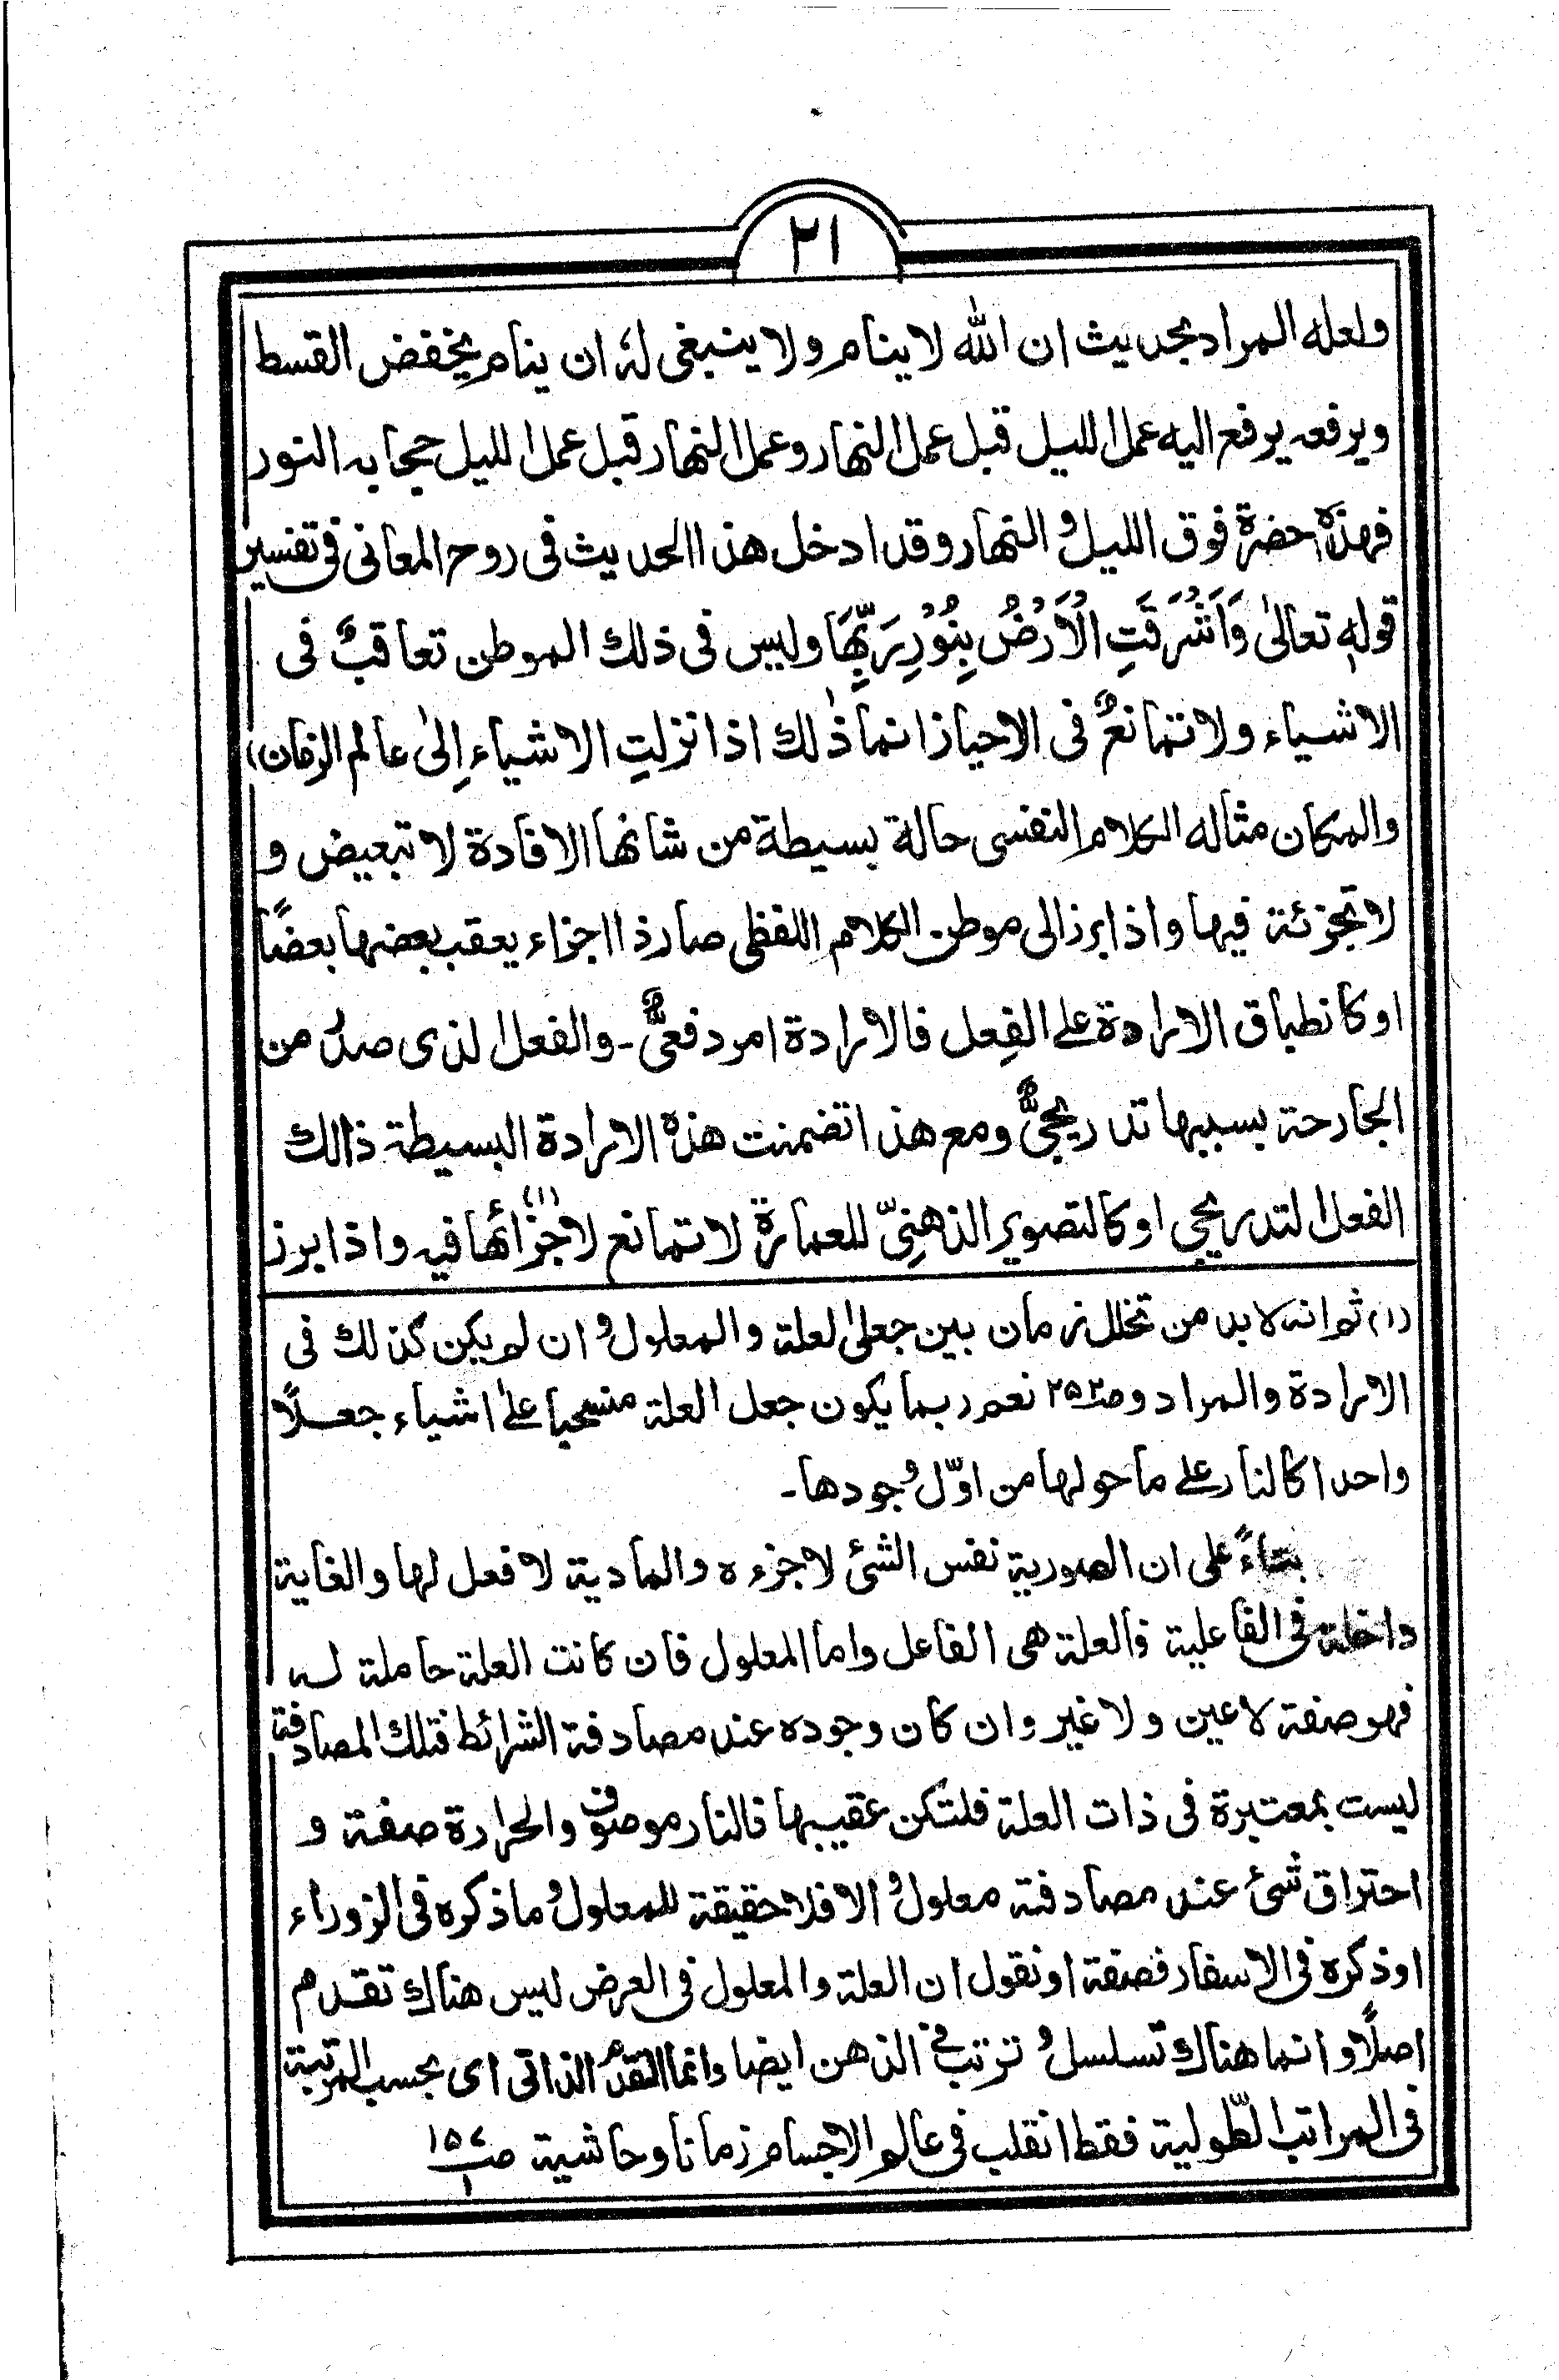 ٢١
ولعله المراد بحديث ان الله لا ينام ولا ينبغى له ان ينام يخفض القسط
ويرفعه يرفع اليه عمل الليل قبل عمل النهار وعمل النهار قبل عمل الليل حجابه النور
فهذه حضرة فوق الليل والنهار وقد ادخل هذا الحديث فى روح المعانى فى تفسير
قوله تعالىٰ وَاَشْرَقَتِ الْاَرْضُ بِنُوْرِ رَبِّهَا وليس فى ذلك الموطن تعاقبٌ فى
الاشياء ولا تمانعٌ فى الاحياز انما ذٰلك اذا نزلتِ الاشياء اِلىٰ عالم الزمان
والمكان مثاله الكلام النفسى حالة بسيطة من شانها الافادة لا تبعيض و
لا تجزئة فيها واذا برز الى موطن الكلام اللفظى صار ذا اجزاء يعقب بعضها بعضًا
او كانطباق الارادة على الفِعل فالارادة امر دفعىٌّ - والفعل الذى صدر من
الجارحة بسببها تدريجىٌّ ومع هذا تضمنت هذه الارادة البسيطة ذالك
الفعل التدريجى او كالتصوير الذهنِىّ للعمارة لا تمانع لاجزائها (١) فيه واذا برز
(١) ثم انه لا بد من تخلل زمان بين جعلى العلة والمعلول وان لم يكن كذلك فى
الارادة والمراد وصـ ٢٥٢ نعم ربما يكون جعل العلة منسحبا علىٰ اشياء جعلًا
واحدا كالنار على ما حولها من اوّل وجودها -
بناءً على ان الصورية نفس الشئ لا جزءه والمادية لا فعل لها والغاية
داخلة فى الفاعلية فالعلة هى الفاعل واما المعلول فان كانت العلة حاملة له
فهو صفة لا عين ولا غير وان كان وجوده عند مصادفة الشرائط فتلك المصادفة
ليست بمعتبرة فى ذات العلة فلتكن عقيبها فالنار موصوف والحرارة صفة و
احتراق شئ عند مصادفته معلول والا فلا حقيقة للمعلول وما ذكره فى الزوراء
او ذكره فى الاسفار فصفة او نقول ان العلة والمعلول فى العرض ليس هناك تقدم
اصلًا وانما هناك تسلسل و ترتب فى الذهن ايضا وانما التقدم الذاتى اى بحسب المرتبة
فى المراتب الطّولية فقط انقلب فى عالم الاجسام زمانا وحاشية صـ ١٥٧/١